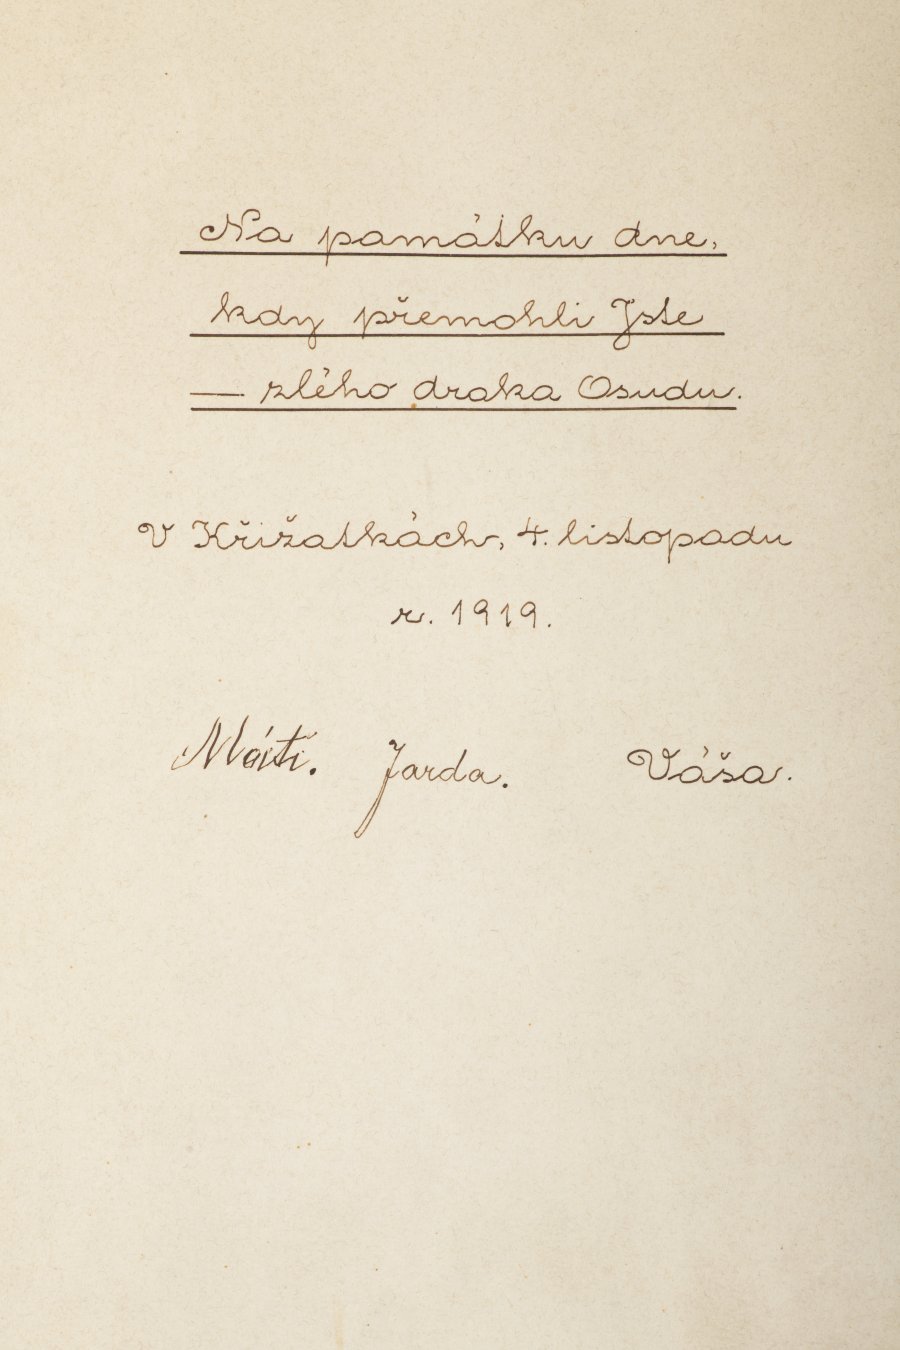 Na památku dne,
kdy přemohli Jste
— zlého draka Osudu.
V Křižatkách, 4. listopadu
r. 1919.
Máti. Jarda. Váša.